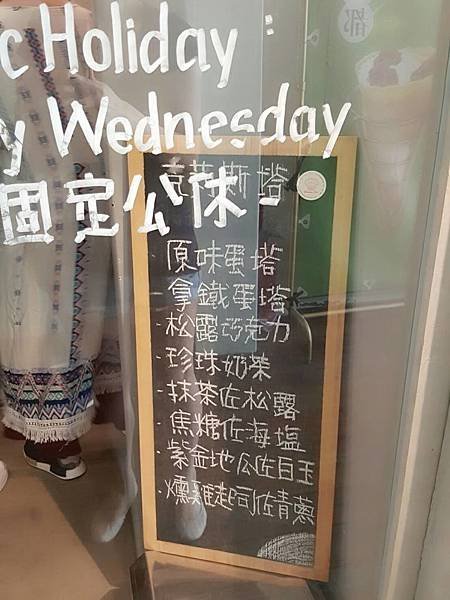 c Holiday:
y Wednesday
固定公休:
克莱斯塔
原味蛋塔
·拿鐵蛋塔
·松露巧克力
·珍珠奶茶
·抹茶佐松露
·焦糖佐海塩
·紫金地瓜佐白玉
·燻雞起司佐青蔥
都